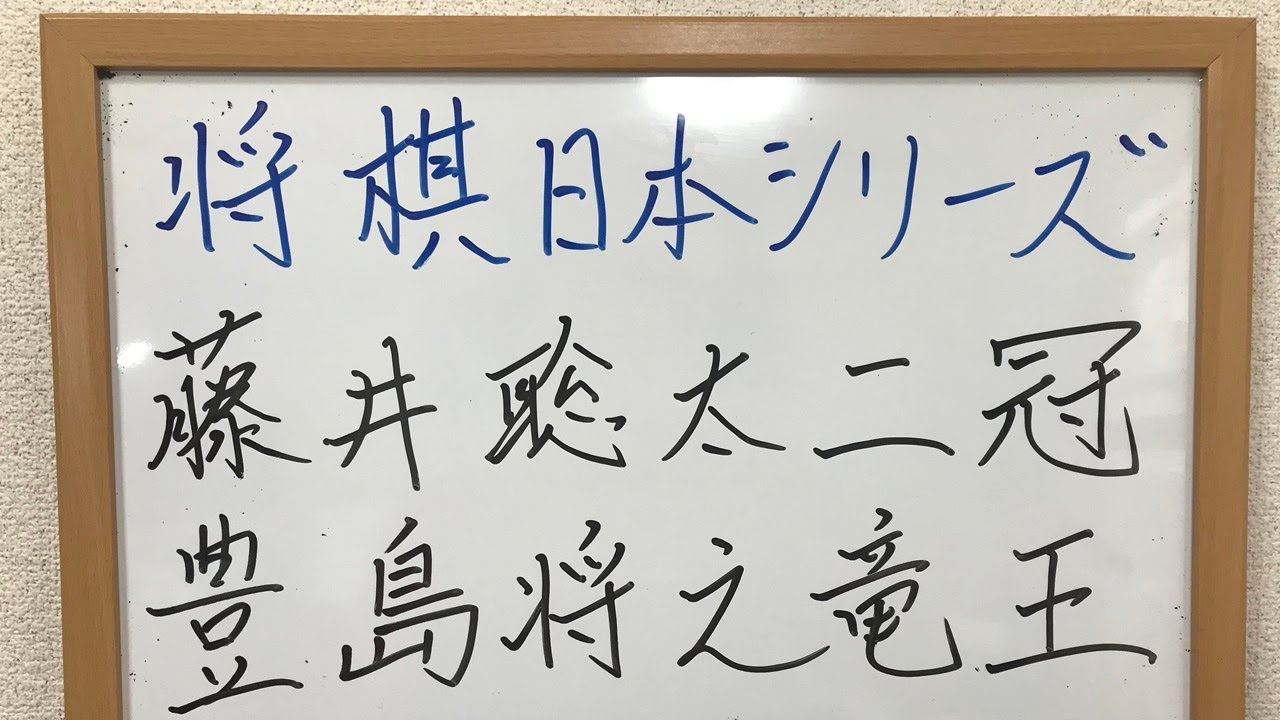 将棋日本シリーズ
藤井聡太二冠
豊島将之竜王